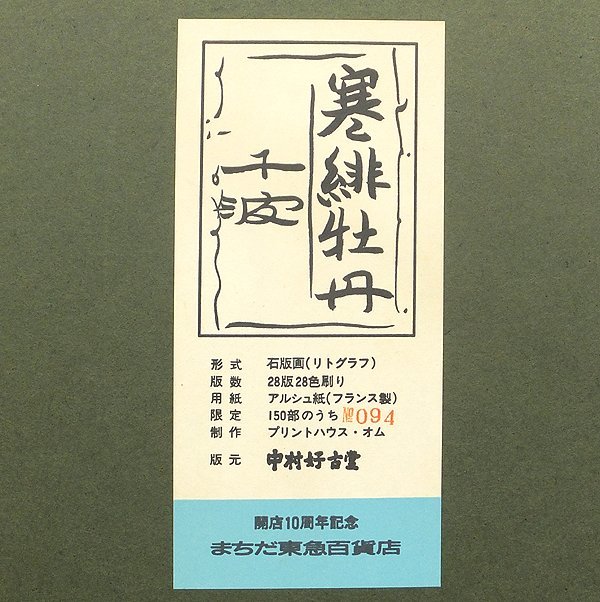 寒緋牡丹
千波
形式 石版画(リトグラフ)
版数 28版28色刷り
用紙 アルシュ紙(フランス製)
限定 150部のうち 094
制作 プリントハウス・オム
版元 中村好古堂
開店10周年記念
まちだ東急百貨店